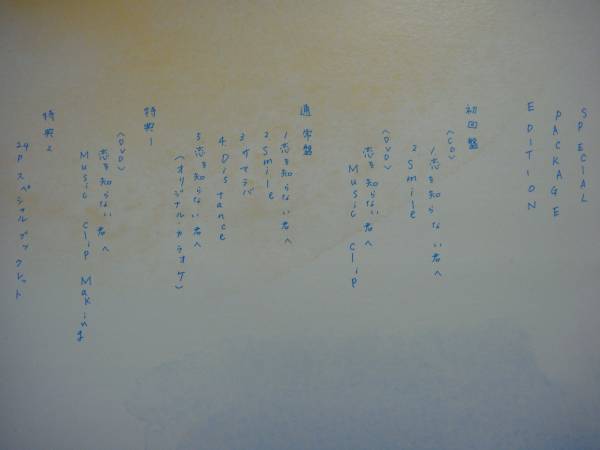 SPECIAL
PACKAGE
EDITION
初回盤
〈CD〉
1 恋を知らない君へ
2 Smile
〈DVD〉
恋を知らない君へ
Music Clip
通常盤
1 恋を知らない君へ
2 Smile
3 サマラバ
4 Distance
5 恋を知らない君へ
〈オリジナル・カラオケ〉
特典1
〈DVD〉
恋を知らない君へ
Music Clip Making
特典2
24Pスペシャルブックレット